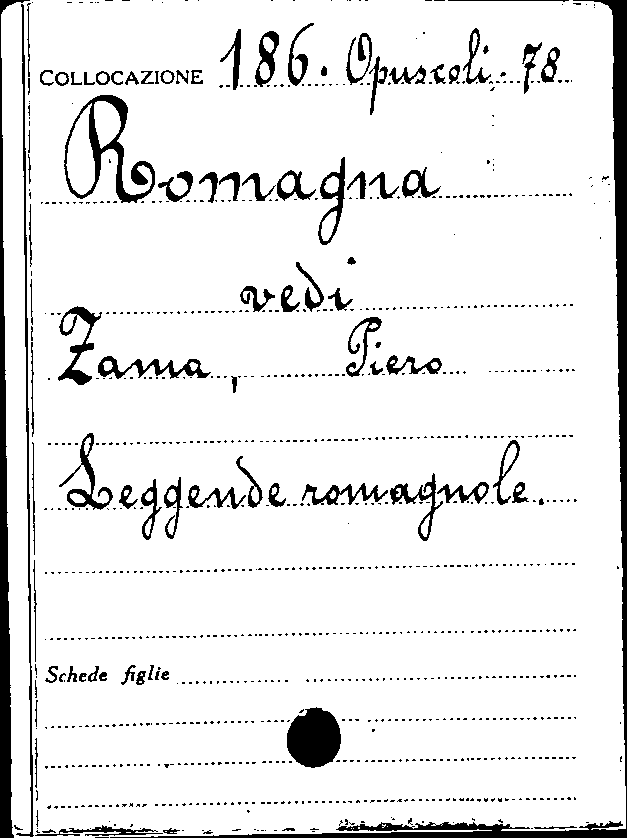 COLLOCAZIONE 186. Opuscoli. 78
Romagna
vedi
Zama, Piero
Leggende romagnole.
Schede figlie